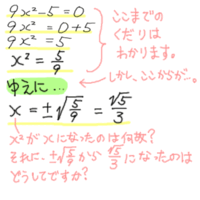 9x²-5=0
9x²=0+5
9x²=5
x²=5/9
ここまでの
くだりは
わかります。
ゆえに…
しかし、ここからが…。
x=±√5/9=√5/3
x²がxになったのは何故?
それに-√5/9から√5/3になったのは
どうしてですか?